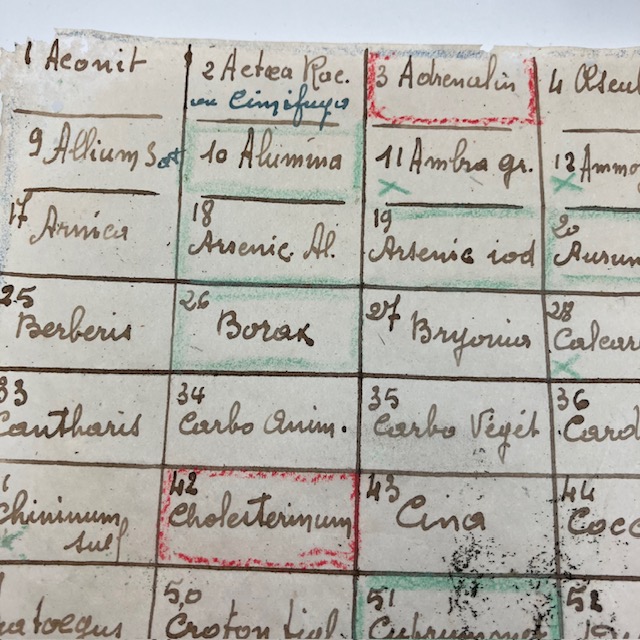 1 Aconit
2 Actœa Rac.
ou Cimifuga
3 Adrenalin
4
9 Allium Sat
10 Alumina
11 Ambra gr.
12 Ammo
17 Arnica
18 Arsenic Al.
19 Arsenic iod
20 Aurum
25 Berberis
26 Borax
27 Bryonia
28 Calcar
33 Cantharis
34 Carbo Anim.
35 Carbo Végét
36 Card
Chininum
sulf
42 Cholesterinum
43 Cina
44 Cocc
50 Croton tigl.
51
52